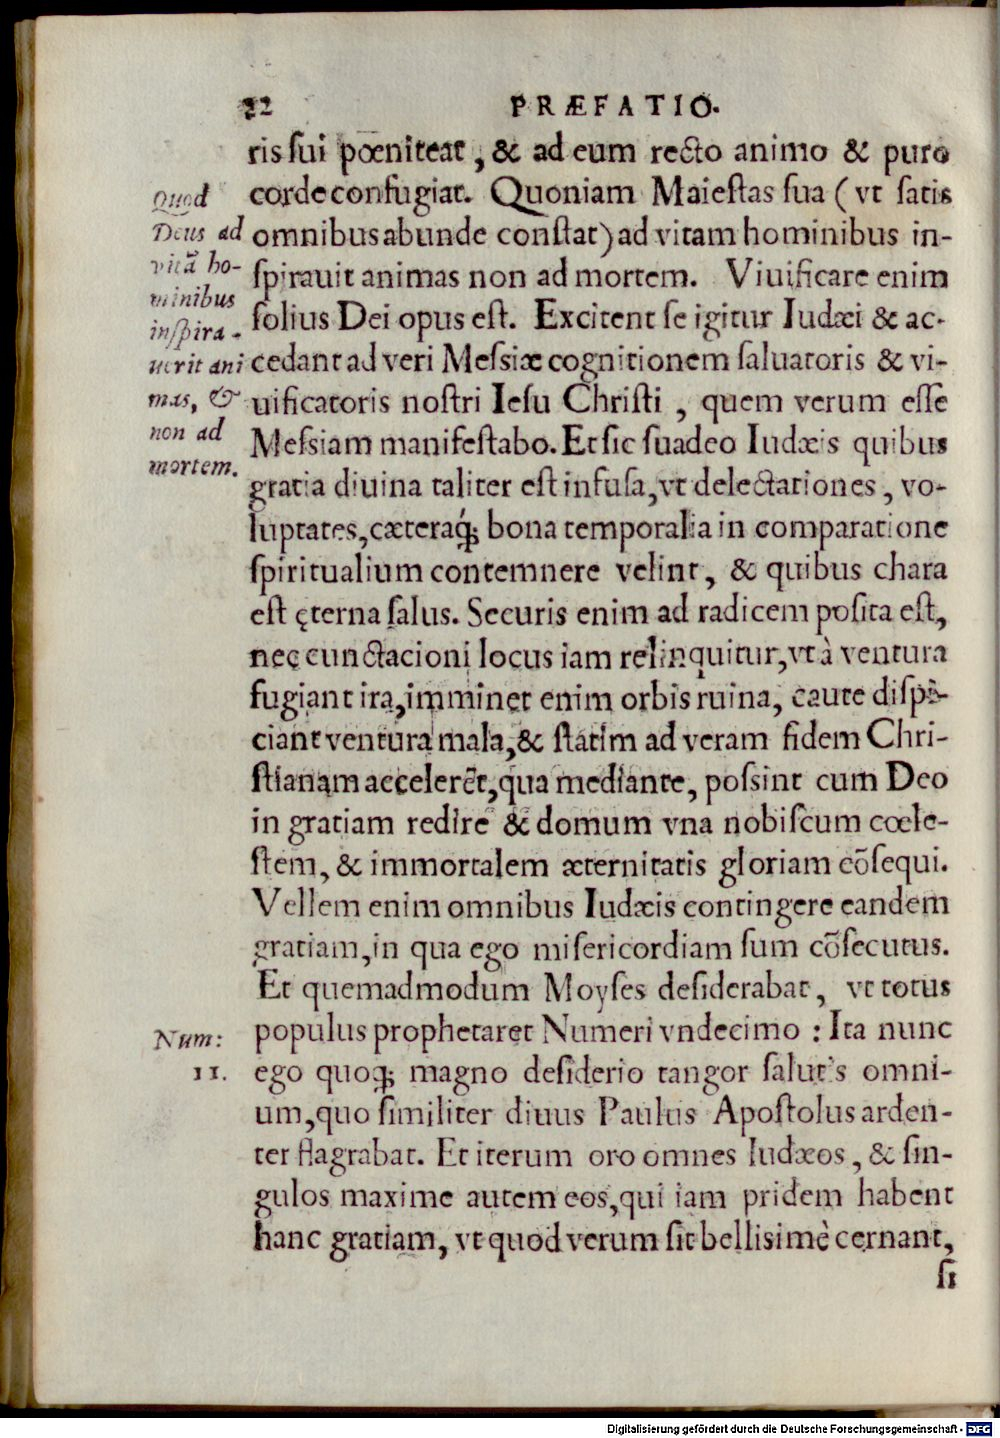 22 PRÆFATIO.
ris ſui pœniteat, & ad eum recto animo & puro
corde confugiat. Quoniam Maieſtas ſua (vt ſatis
omnibus abunde conſtat) ad vitam hominibus in-
ſpirauit animas non ad mortem. Viuificare enim
ſolius Dei opus eſt. Excitent ſe igitur Iudæi & ac-
cedant ad veri Meſsiæ cognitionem ſaluatoris & vi-
uificatoris noſtri Ieſu Chriſti, quem verum eſſe
Meſsiam manifeſtabo. Et ſic ſuadeo Iudæis quibus
gratia diuina taliter eſt infuſa, vt delectationes, vo-
luptates, cæteraq́; bona temporalia in comparatione
ſpiritualium contemnere velint, & quibus chara
eſt ęterna ſalus. Securis enim ad radicem poſita eſt,
nec cunctacioni locus iam relinquitur, vt à ventura
fugiant ira, imminet enim orbis ruina, caute diſpi-
ciant ventura mala, & ſtatim ad veram fidem Chri-
ſtianam accelerẽt, qua mediante, poſsint cum Deo
in gratiam redire & domum vna nobiſcum cœle-
ſtem, & immortalem æternitatis gloriam cõſequi.
Vellem enim omnibus Iudæis contingere eandem
gratiam, in qua ego miſericordiam ſum cõſecutus.
Et quemadmodum Moyſes deſiderabat, vt totus
populus prophetaret Numeri vndecimo : Ita nunc
ego quoq; magno deſiderio tangor ſalutis omni-
um, quo ſimiliter diuus Paulus Apoſtolus arden-
ter flagrabat. Et iterum oro omnes Iudæos, & ſin-
gulos maxime autem eos, qui iam pridem habent
hanc gratiam, vt quod verum ſit bellisimè cernant,
ſi
Quod
Deus ad
vitã ho-
minibus
inſpira-
uerit ani
mas, &
non ad
mortem.
Num:
11.
Digitalisierung gefördert durch die Deutsche Forschungsgemeinschaft - DFG